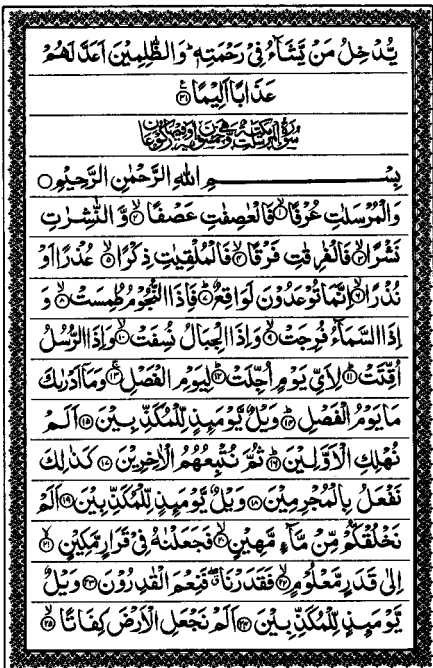 يُّدۡخِلُ مَنۡ يَّشَآءُ فِىۡ رَحۡمَتِهٖ ؕ وَالظّٰلِمِيۡنَ اَعَدَّ لَهُمۡ
عَذَابًا اَلِيۡمًا ﴿۳۱﴾
بِسۡمِ اللهِ الرَّحۡمٰنِ الرَّحِيۡمِ ○
وَالۡمُرۡسَلٰتِ عُرۡفًا ۙ﴿۱﴾ فَالۡعٰصِفٰتِ عَصۡفًا ۙ﴿۲﴾ وَّالنّٰشِرٰتِ
نَشۡرًا ۙ﴿۳﴾ فَالۡفٰرِقٰتِ فَرۡقًا ۙ﴿۴﴾ فَالۡمُلۡقِيٰتِ ذِكۡرًا ۙ﴿۵﴾ عُذۡرًا اَوۡ
نُذۡرًا ۙ﴿۶﴾ اِنَّمَا تُوۡعَدُوۡنَ لَوَاقِعٌ ؕ﴿۷﴾ فَاِذَا النُّجُوۡمُ طُمِسَتۡ ۙ﴿۸﴾ وَ
اِذَا السَّمَآءُ فُرِجَتۡ ۙ﴿۹﴾ وَاِذَا الۡجِبَالُ نُسِفَتۡ ۙ﴿۱۰﴾ وَاِذَا الرُّسُلُ
اُقِّتَتۡ ؕ﴿۱۱﴾ لِاَىِّ يَوۡمٍ اُجِّلَتۡ ؕ﴿۱۲﴾ لِيَوۡمِ الۡفَصۡلِ ۚ﴿۱۳﴾ وَمَاۤ اَدۡرٰىكَ
مَا يَوۡمُ الۡفَصۡلِ ؕ﴿۱۴﴾ وَيۡلٌ يَّوۡمَئِذٍ لِّلۡمُكَذِّبِيۡنَ ﴿۱۵﴾ اَلَمۡ
نُهۡلِكِ الۡاَوَّلِيۡنَ ؕ﴿۱۶﴾ ثُمَّ نُتۡبِعُهُمُ الۡاٰخِرِيۡنَ ﴿۱۷﴾ كَذٰلِكَ
نَفۡعَلُ بِالۡمُجۡرِمِيۡنَ ﴿۱۸﴾ وَيۡلٌ يَّوۡمَئِذٍ لِّلۡمُكَذِّبِيۡنَ ﴿۱۹﴾ اَلَمۡ
نَخۡلُقۡكُّمۡ مِّنۡ مَّآءٍ مَّهِيۡنٍ ۙ﴿۲۰﴾ فَجَعَلۡنٰهُ فِىۡ قَرَارٍ مَّكِيۡنٍ ۙ﴿۲۱﴾
اِلٰى قَدَرٍ مَّعۡلُوۡمٍ ۙ﴿۲۲﴾ فَقَدَرۡنَا ۖ فَنِعۡمَ الۡقٰدِرُوۡنَ ﴿۲۳﴾ وَيۡلٌ
يَّوۡمَئِذٍ لِّلۡمُكَذِّبِيۡنَ ﴿۲۴﴾ اَلَمۡ نَجۡعَلِ الۡاَرۡضَ كِفَاتًا ۙ﴿۲۵﴾